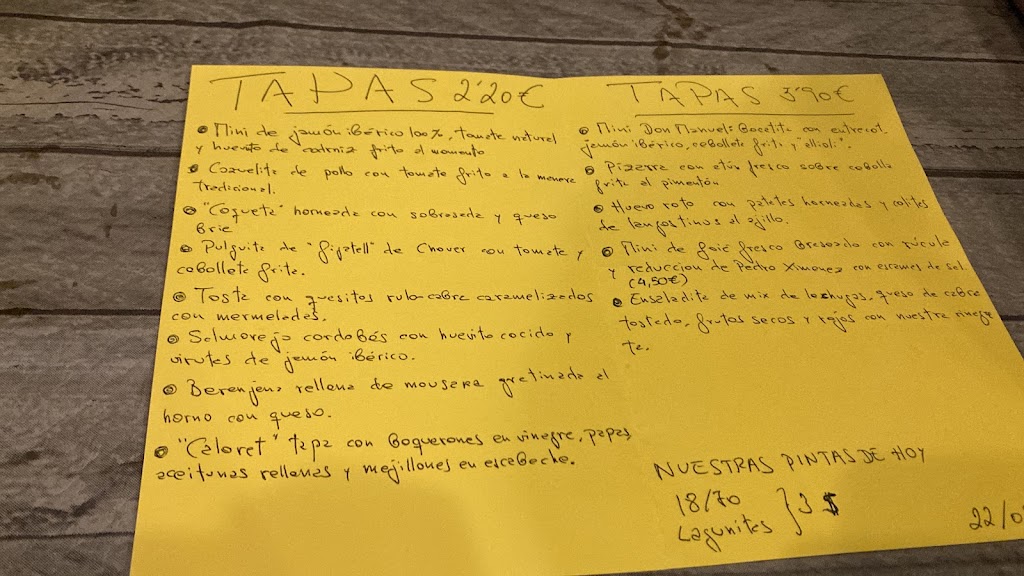 TAPAS 2'20€
Mini de jamón ibérico 100%, tomate natural
y huevito de codorniz frito al momento
Cazuelita de pollo con tomate frito a la manera
tradicional.
"Coqueta" horneada con sobrasada y queso
Brie
Pulguita de "figatell" de Chover con tomate y
cebolleta frita.
Tosta con quesitos rulo-cabra caramelizados
con mermeladas.
Salmorejo cordobés con huevito cocido y
virutas de jamón ibérico.
Berenjena rellena de mousaka gratinada al
horno con queso.
"Caloret" tapa con boquerones en vinagre, papas,
aceitunas rellenas y mejillones en escabeche.
TAPAS 3'90€
Mini Don Manuel: Bocatita con entrecot,
jamón ibérico, cebolleta frita y "allioli".
Pizarra con atún fresco sobre cebolla
frita al pimentón
Huevo roto con patatas horneadas y colitas
de langostinos al ajillo.
Mini de foié fresco braseado con rúcula
y reduccion de Pedro Ximenez con escamas de sal.
(4,50€)
Ensaladita de mix de lechugas, queso de cabra
tostado, frutos secos y rojos con nuestra vinagre
ta.
NUESTRAS PINTAS DE HOY
18/70
Lagunitas } 3 $
22/0